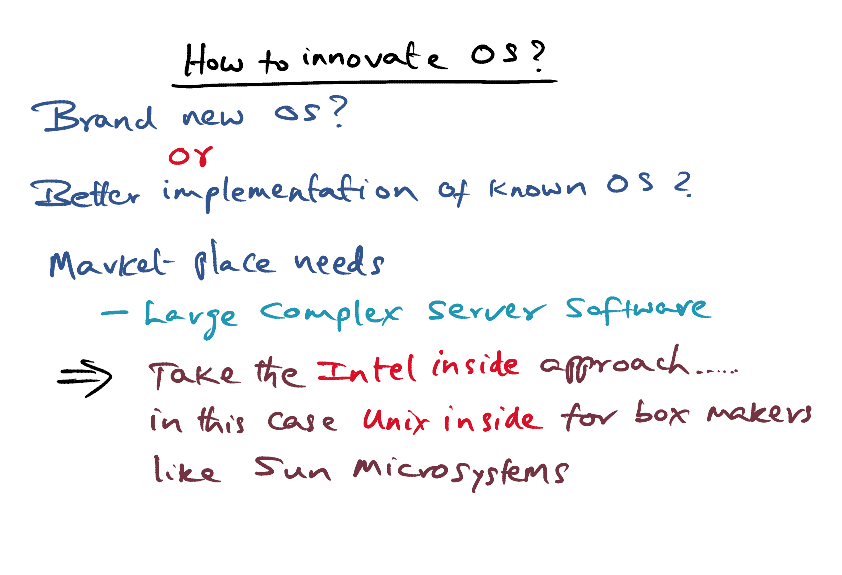 How to innovate OS?
Brand new OS?
or
Better implementation of known OS?
Market place needs
- Large complex server software
⇒ Take the Intel inside approach.....
in this case Unix inside for box makers
like Sun Microsystems